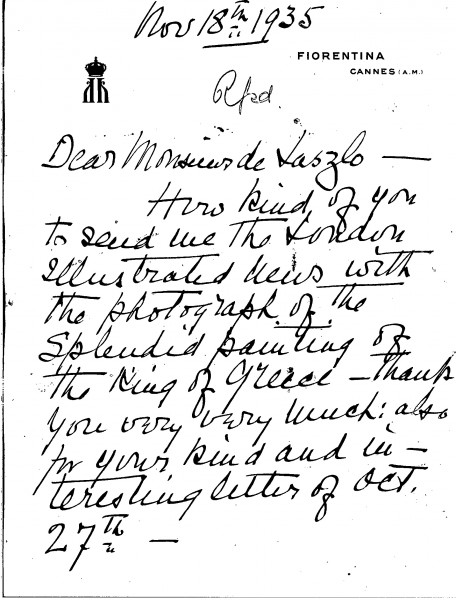 Nov 18th 1935
FIORENTINA
CANNES (A.M.)
Rpd.
Dear Monsieur de Laszlo —
How kind of you
to send me the London
Illustrated News with
the photograph of the
splendid painting of
the King of Greece — Thank
you very very much: also
for your kind and in-
teresting letter of Oct.
27th —